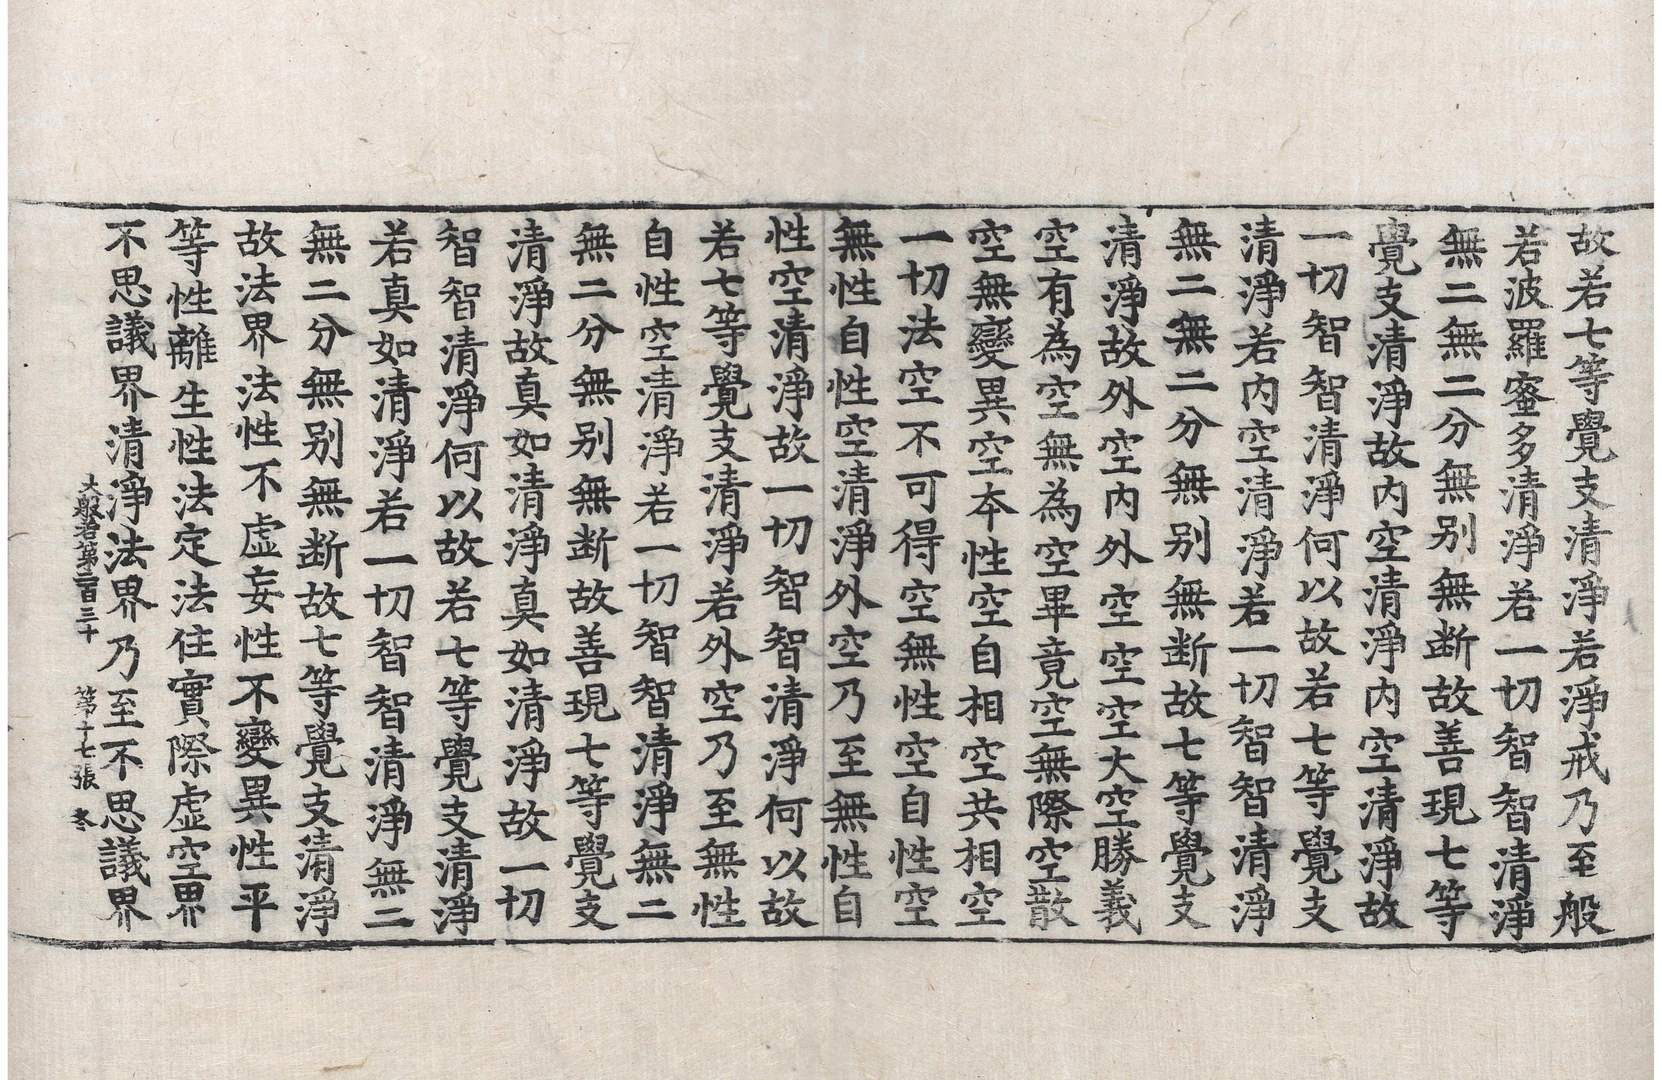 故若七等覺支清淨若淨戒乃至般
若波羅蜜多清淨若一切智智清淨
無二無二分無别無断故善現七等
覺支清淨故內空清淨內空清淨故
一切智智清淨何以故若七等覺支
清淨若內空清淨若一切智智清淨
無二無二分無别無断故七等覺支
清淨故外空內外空空空大空勝義
空有為空無為空畢竟空無際空散
空無變異空本性空自相空共相空
一切法空不可得空無性空自性空
無性自性空清淨外空乃至無性自
性空清淨故一切智智清淨何以故
若七等覺支清淨若外空乃至無性
自性空清淨若一切智智清淨無二
無二分無别無断故善現七等覺支
清淨故真如清淨真如清淨故一切
智智清淨何以故若七等覺支清淨
若真如清淨若一切智智清淨無二
無二分無别無断故七等覺支清淨
故法界法性不虛妄性不變異性平
等性離生性法定法住實際虛空界
不思議界清淨法界乃至不思議界
大般若第二百三十 第十七張 冬